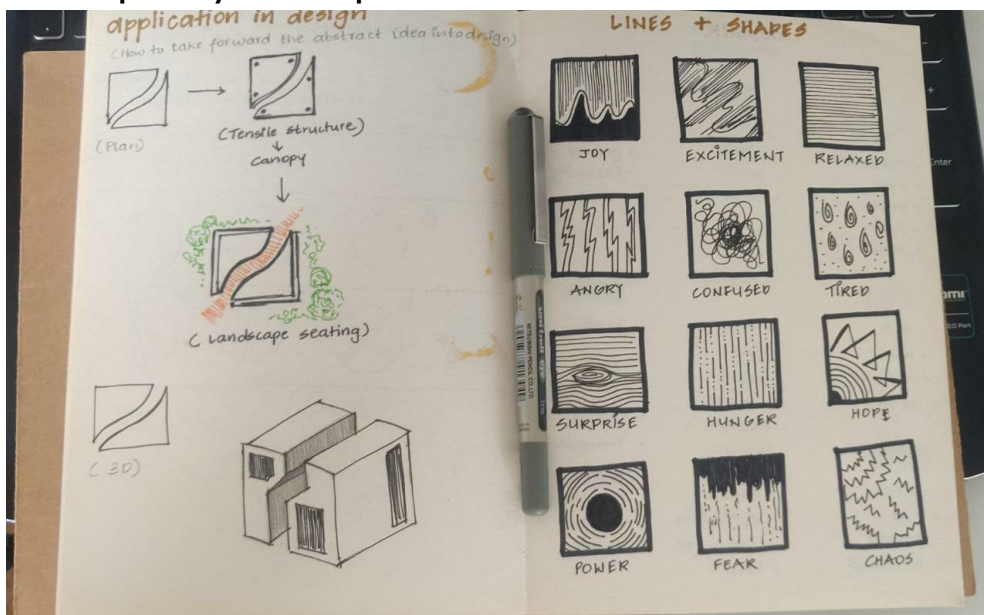 application in design
(How to take forward the abstract idea into design)
(Plan)
(Tensile structure)
canopy
(Landscape seating)
(3D)
LINES + SHAPES
JOY
EXCITEMENT
RELAXED
ANGRY
CONFUSED
TIRED
SURPRISE
HUNGER
HOPE
POWER
FEAR
CHAOS
MITSUBISHI PENCIL CO.LTD.
Enter